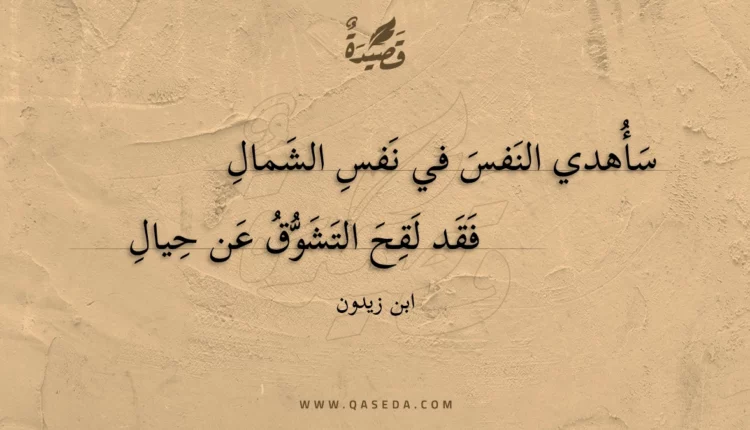 قَصِيدَةٌ
سَأُهدي النَفسَ في نَفسِ الشَمالِ
فَقَد لَقِحَ التَشَوُّقُ عَن حِيالِ
ابن زيدون
WWW.QASEDA.COM